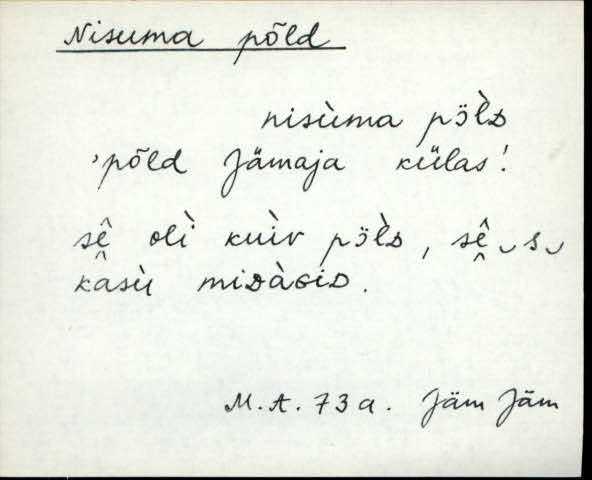 Nisuma põld
nisùma pö̀lD
'põld Jämaja külas!
sê̬ olì kuìv pö̀lD, sê̬‿s‿
kasù miDàGiD.
M.A. 73 a. Jäm Jäm